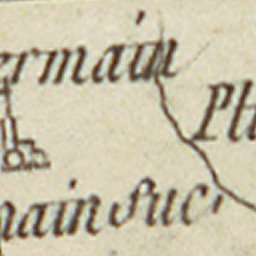 ermain
Ph
main suc.